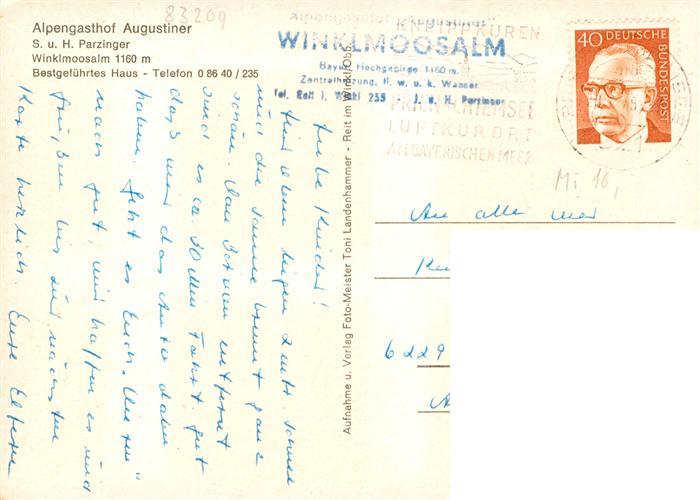 83209
Alpengasthof Augustiner
S. u. H. Parzinger
Winklmoosalm 1160 m
Bestgeführtes Haus - Telefon 0 86 40 / 235
"Augustiner"
WINKLMOOSALM
Bayer. Hochgebirge 1160 m.
Zentralheizung, fl. w. u. k. Wasser
Tel. Reit i. Winkl 235 J. u. H. Parzinger
KNEIPPKUREN
PRIEN-CHIEMSEE
LUFTKURORT
AM BAYERISCHEN MEER
40 DEUTSCHE
BUNDESPOST
Mi 16,
Liebe Kinder!
Hier oben liegen Schnee
und die Sonne brennt ganz
schön. Von entfernt
sind es ca 30 Min Fahrt. gut
daß wir das Auto dabei
haben. Geht es Euch,
noch gut, wir hoffen es und
grüßen bis zur nächsten
Karte herzlich. Eure Eltern
Aufnahme u. Verlag Foto-Meister Toni Landenhammer - Reit im Winkl/Obb.
An alle
6229